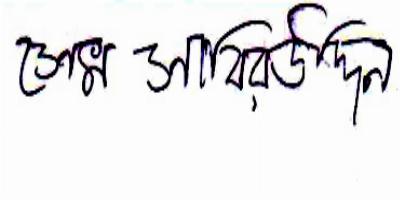 শেখ সাবিরউদ্দিন